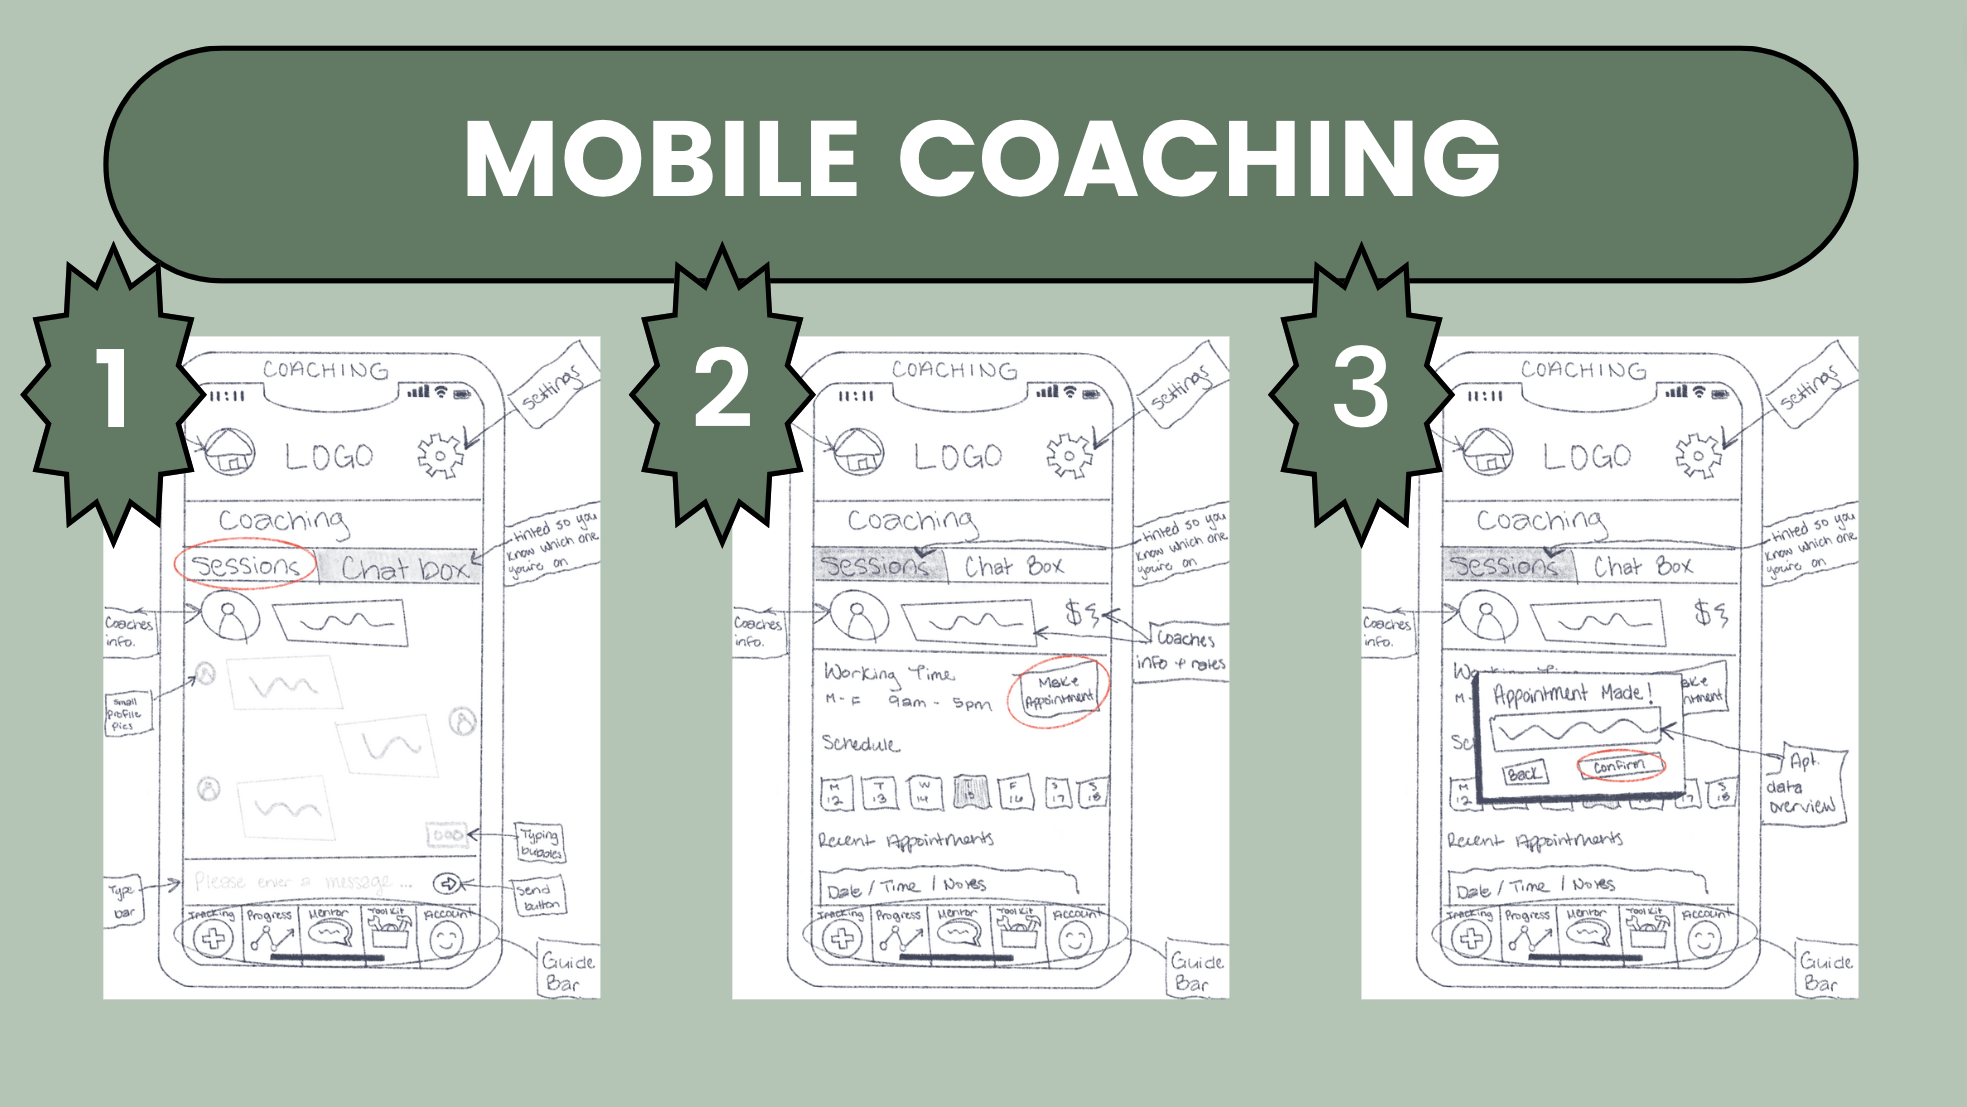 MOBILE COACHING
1
COACHING
11:11
Settings
LOGO
Coaching
tinted so you
know which one
you're on
Sessions
Chat box
Coaches
info.
Small
Profile
Pics
Typing
bubbles
Please enter a message ...
Type
bar
Send
button
Tracking
Progress
Mentor
Tool Kit
Account
Guide
Bar
2
COACHING
11:11
Settings
LOGO
Coaching
tinted so you
know which one
you're on
Sessions
Chat Box
Coaches
info.
$
Coaches
info + rates
Working Time
M - F 9am - 5pm
Make
Appointment
Schedule
M
12
T
13
W
14
T
15
F
16
S
17
S
18
Recent Appointments
Date / Time / Notes
Tracking
Progress
Mentor
Tool Kit
Account
Guide
Bar
3
COACHING
11:11
Settings
LOGO
Coaching
tinted so you
know which one
you're on
Sessions
Chat Box
Coaches
info.
$
Appointment Made!
Back
Confirm
Apt.
data
overview
M
12
17
S
18
Recent Appointments
Date / Time / Notes
Tracking
Progress
Mentor
Tool Kit
Account
Guide
Bar